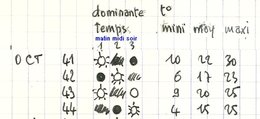 dominante t°
temps mini moy maxi
1 2 3
matin midi soir
OCT 41 10 22 30
42 6 17 23
43 9 20 25
44 4 15 25